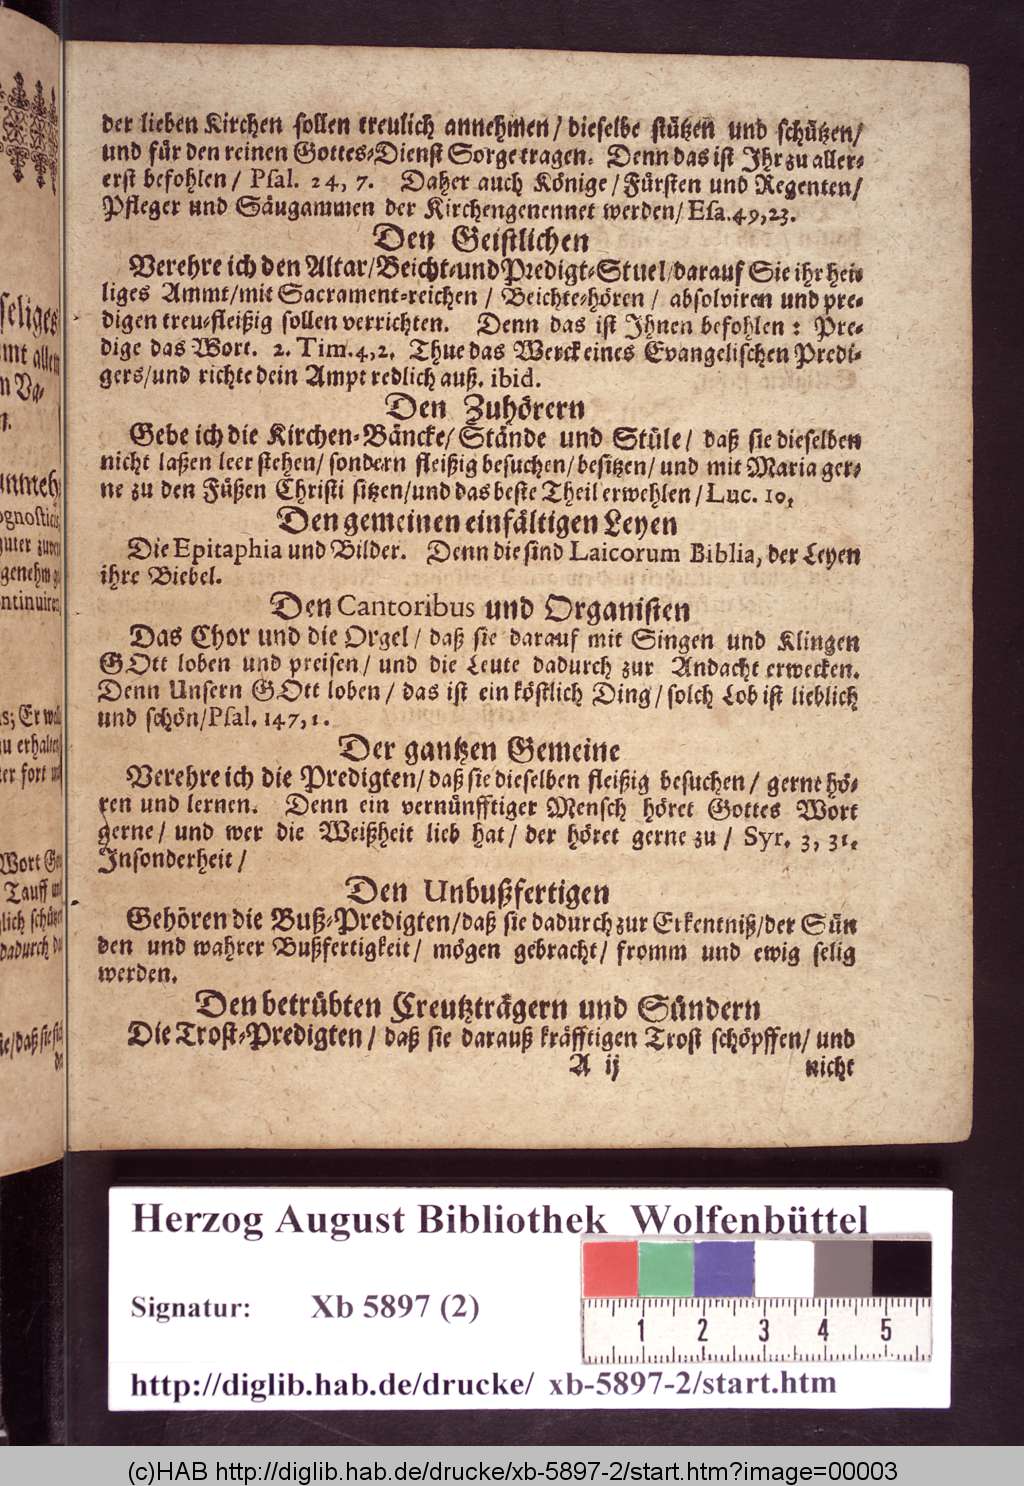 der lieben Kirchen sollen treulich annehmen / dieselbe stützen und schützen/
und für den reinen Gottes-Dienst Sorge tragen. Denn das ist Ihr zu aller-
erst befohlen / Psal. 24, 7. Daher auch Könige / Fürsten und Regenten/
Pfleger und Säugammen der Kirchen genennet werden/ Esa. 49, 23.
Den Geistlichen
Verehre ich den Altar/ Beicht- und Predigt-Stuel/ darauf Sie ihr hei-
liges Ammt/ mit Sacrament-reichen / Beichte-hören / absolviren und pre-
digen treu-fleißig sollen verrichten. Denn das ist Ihnen befohlen : Pre-
dige das Wort. 2. Tim. 4, 2. Thue das Werck eines Evangelischen Predi-
gers/ und richte dein Ampt redlich auß. ibid.
Den Zuhörern
Gebe ich die Kirchen-Bäncke/ Stände und Stüle / daß sie dieselben
nicht laßen leer stehen/ sondern fleißig besuchen/ besitzen/ und mit Maria ger-
ne zu den Füßen Christi sitzen/ und das beste Theil erwehlen / Luc. 10,
Den gemeinen einfältigen Leyen
Die Epitaphia und Bilder. Denn die sind Laicorum Biblia, der Leyen
ihre Biebel.
Den Cantoribus und Organisten
Das Chor und die Orgel / daß sie darauf mit Singen und Klingen
GOtt loben und preisen / und die Leute dadurch zur Andacht erwecken.
Denn Unsern GOtt loben / das ist ein köstlich Ding/ solch Lob ist lieblich
und schön/ Psal. 147, 1.
Der gantzen Gemeine
Verehre ich die Predigten/ daß sie dieselben fleißig besuchen / gerne hö-
ren und lernen. Denn ein vernünfftiger Mensch höret Gottes Wort
gerne / und wer die Weißheit lieb hat/ der höret gerne zu / Syr. 3, 31.
Insonderheit /
Den Unbußfertigen
Gehören die Buß-Predigten/ daß sie dadurch zur Erkentniß/ der Sün
den und wahrer Bußfertigkeit / mögen gebracht/ fromm und ewig selig
werden.
Den betrübten Creutzträgern und Sündern
Die Trost-Predigten / daß sie darauß kräfftigen Trost schöpffen/ und
A ij nicht
Herzog August Bibliothek Wolfenbüttel
Signatur: Xb 5897 (2)
1 2 3 4 5
http://diglib.hab.de/drucke/ xb-5897-2/start.htm
(c)HAB http://diglib.hab.de/drucke/xb-5897-2/start.htm?image=00003